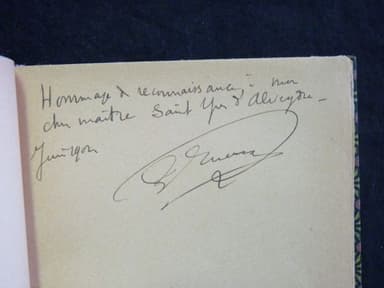 Hommage de reconnaissance à mon
cher maître Saint Yves d'Alveydre_
Juin 1901